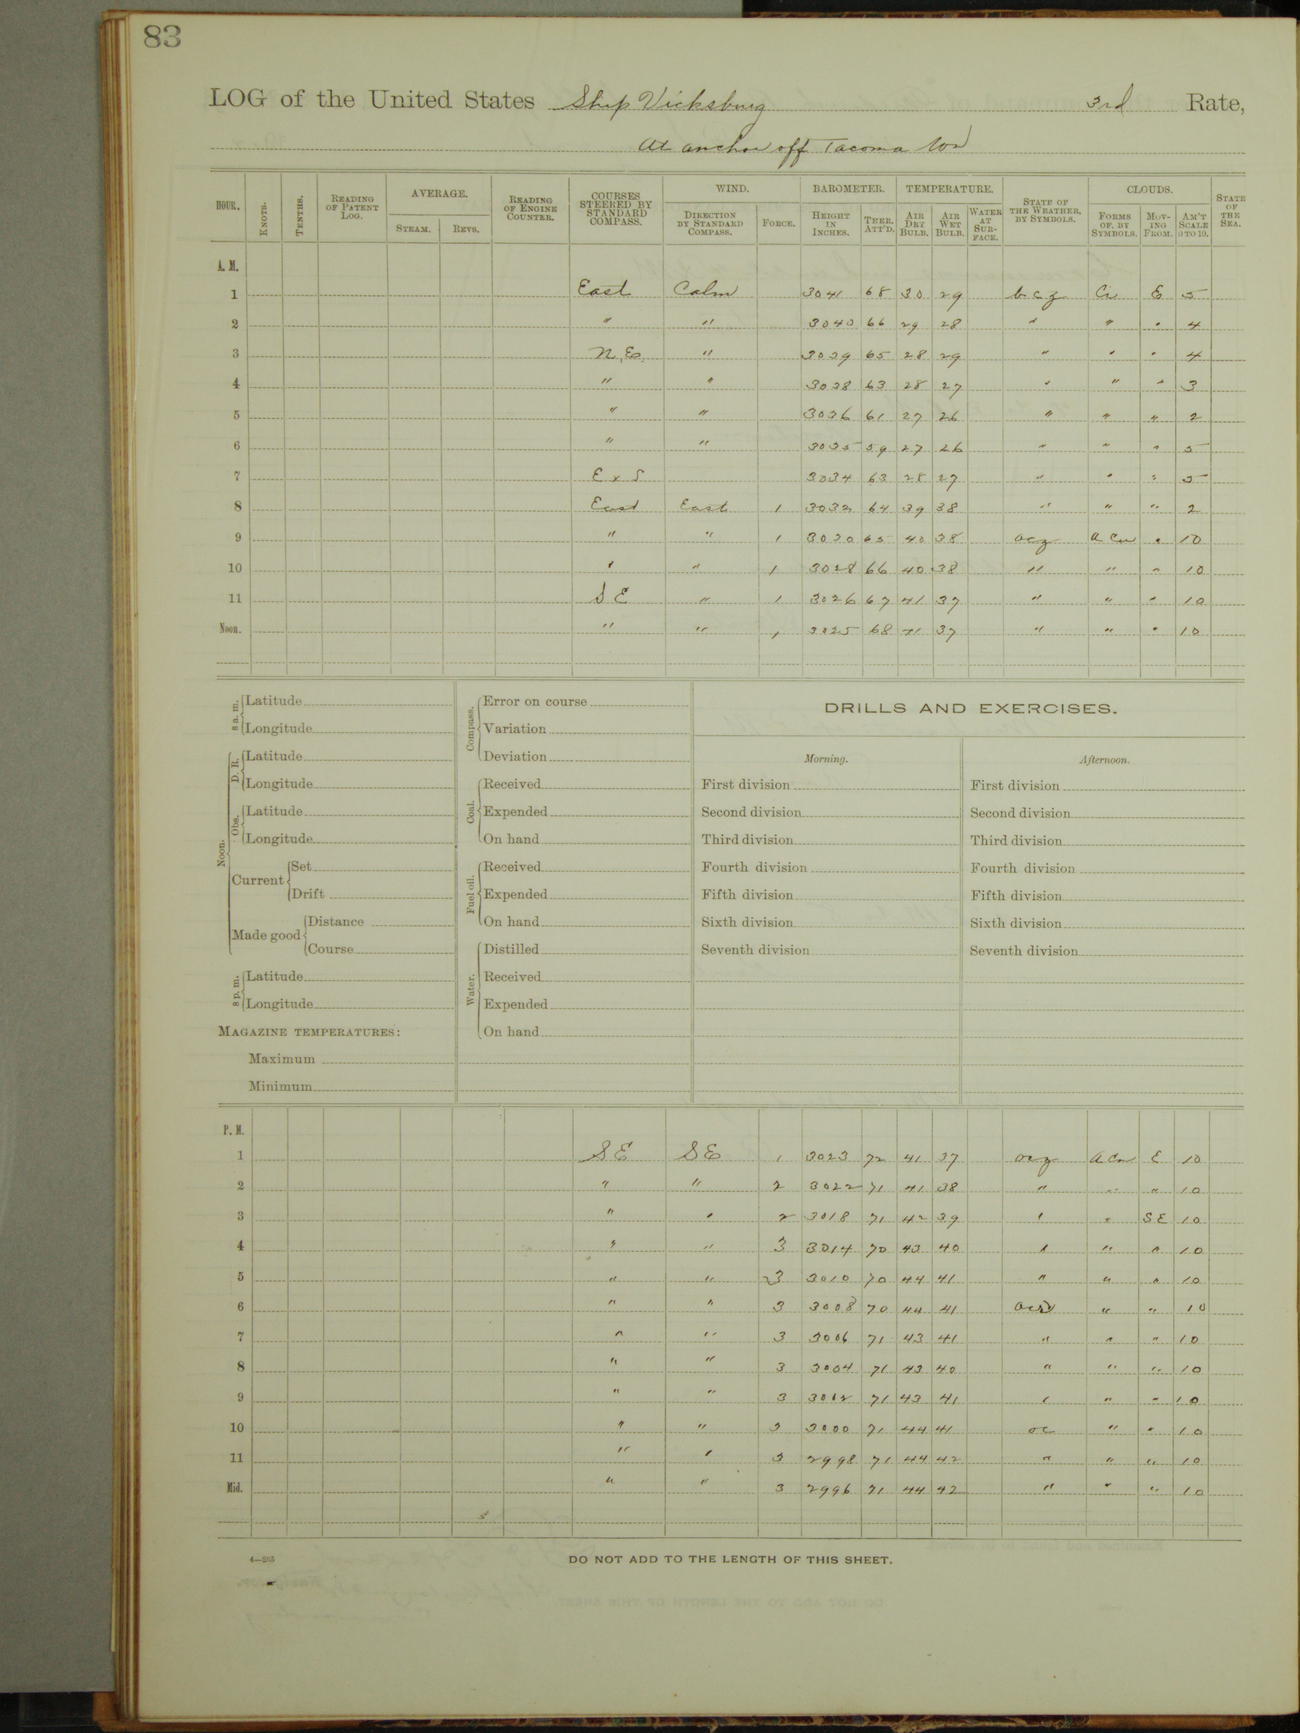 83
LOG of the United States Ship Vicksburg 3rd Rate,
At anchor off Tacoma Wn
HOUR. KNOTS. TENTHS. READING OF PATENT LOG. AVERAGE. STEAM. REVS. READING OF ENGINE COUNTER. COURSES STEERED BY STANDARD COMPASS. WIND. DIRECTION BY STANDARD COMPASS. FORCE. BAROMETER. HEIGHT IN INCHES. THER. ATT'D. TEMPERATURE. AIR DRY BULB. AIR WET BULB. WATER AT SURFACE. STATE OF THE WEATHER, BY SYMBOLS. CLOUDS. FORMS OF, BY SYMBOLS. MOVING FROM. AM'T SCALE 0 TO 10. STATE OF THE SEA.
A. M.
1 East Calm 3041 68 30 29 bcz Ci E 5
2 " " 3040 66 29 28 " " " 4
3 N.E. " 3039 65 28 29 " " " 4
4 " " 3038 63 28 27 " " " 3
5 " " 3036 61 27 26 " " " 2
6 " " 3035 59 27 26 " " " 5
7 E x S 3034 63 28 27 " " " 5
8 East East 1 3032 64 39 38 " " " 2
9 " " 1 3030 65 40 38 ocz A Cu " 10
10 " " 1 3028 66 40 38 " " " 10
11 SE " 1 3026 67 41 37 " " " 10
Noon. " " 1 3025 68 41 37 " " " 10
8 a. m. Latitude
Longitude
Noon. D. R. Latitude
Longitude
Obs. Latitude
Longitude
Current Set
Drift
Made good Distance
Course
8 p. m. Latitude
Longitude
MAGAZINE TEMPERATURES:
Maximum
Minimum
Compass. Error on course
Variation
Deviation
Coal. Received
Expended
On hand
Fuel oil. Received
Expended
On hand
Water. Distilled
Received
Expended
On hand
DRILLS AND EXERCISES.
Morning. Afternoon.
First division First division
Second division Second division
Third division Third division
Fourth division Fourth division
Fifth division Fifth division
Sixth division Sixth division
Seventh division Seventh division
P. M.
1 SE SE 1 3023 72 41 37 ocz A Cu E 10
2 " " 2 3022 71 41 38 " " " 10
3 " " 2 3018 71 42 39 " " SE 10
4 " " 3 3014 70 43 40 " " " 10
5 " " 3 3010 70 44 41 " " " 10
6 " " 3 3008 70 44 41 " " 10
7 " " 3 3006 71 43 41 " " " 10
8 " " 3 3004 71 43 40 " " " 10
9 " " 3 3002 71 43 41 " " " 10
10 " " 3 3000 71 44 41 oc " " 10
11 " " 3 2998 71 44 42 " " " 10
Mid. " " 3 2996 71 44 42 " " " 10
DO NOT ADD TO THE LENGTH OF THIS SHEET.